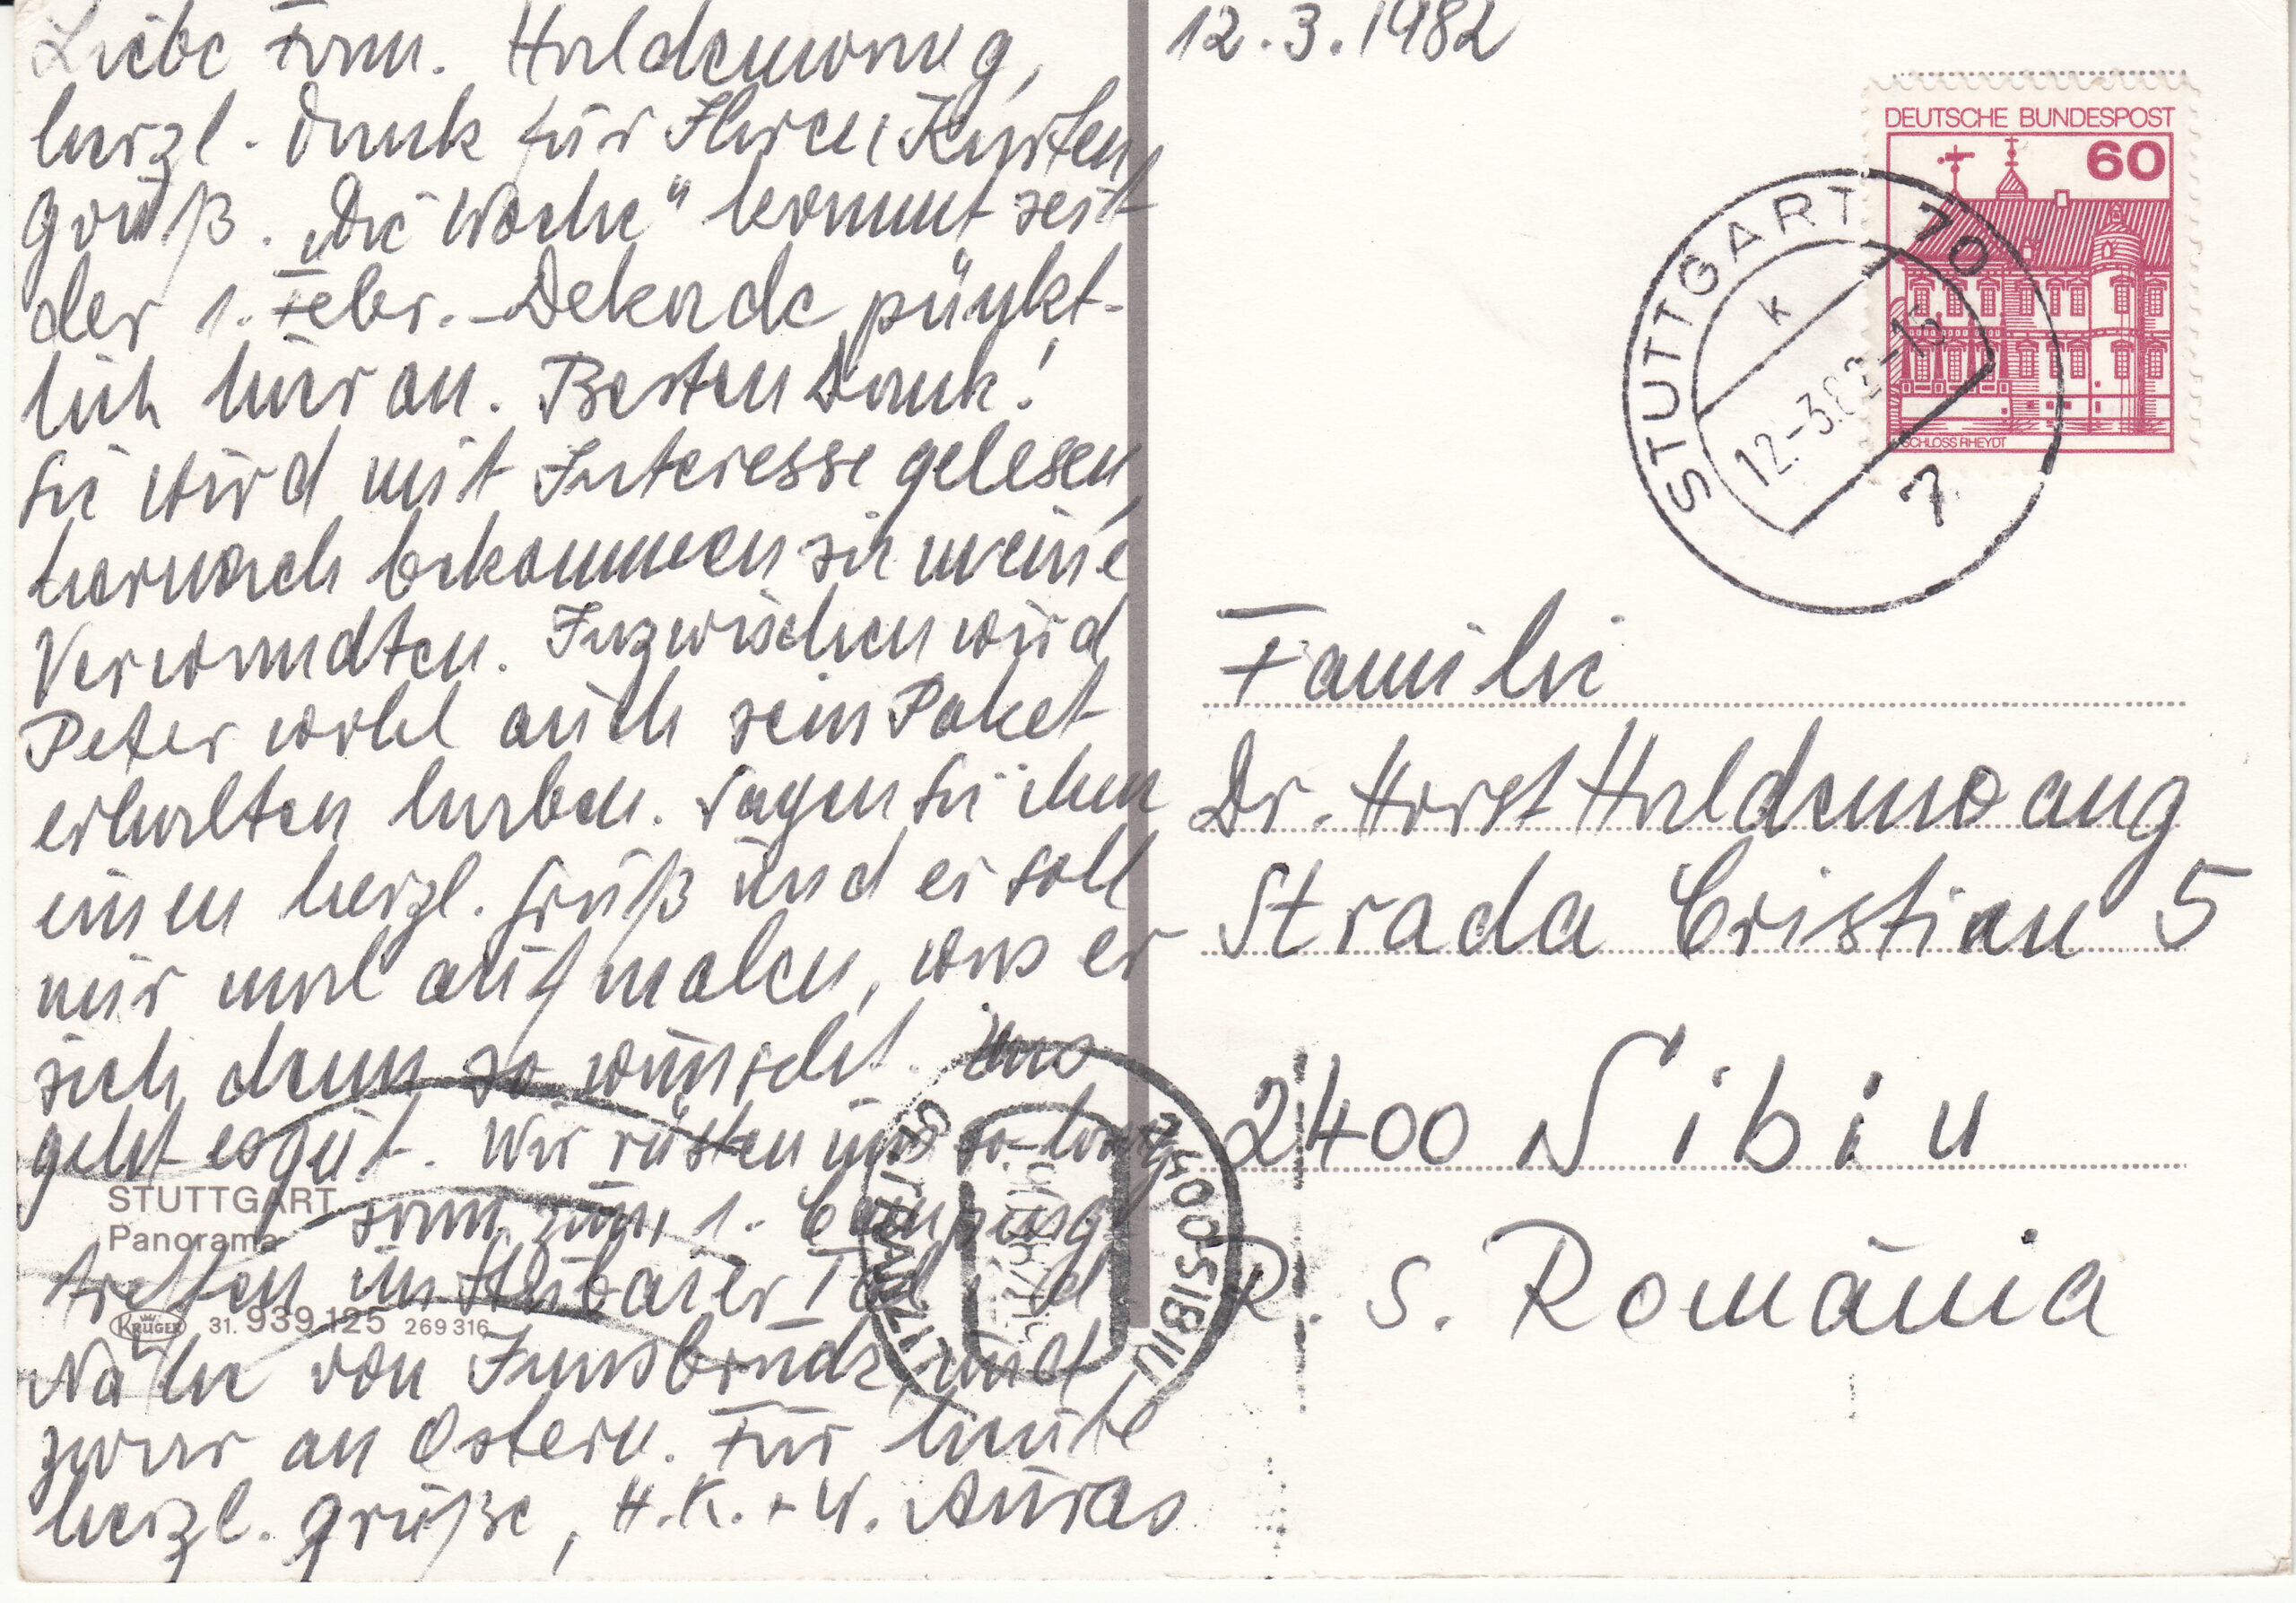 12.3.1982
Liebe Fam. Haldenwang,
herzl. Dank für Ihren Karten
gruß. „Die Woche" kommt seit
der 1. Febr.-Dekade pünkt-
lich hier an. Besten Dank!
Sie wird mit Interesse gelesen,
hernach bekommen sie meine
Verwandten. Inzwischen wird
Peter wohl auch sein Paket
erhalten haben. Sagen Sie ihm
einen herzl. Gruß und er soll
mir mal aufmalen, was er
sich denn so wünscht. Uns
geht es gut. Wir rüsten uns so lang
sam zum 1. Camping
treffen im Stubaier Tal i. d.
Nähe von Innsbruck, und
zwar an Ostern. Für heute
herzl. Grüße, H.K. + W. Auras
STUTTGART
Panorama
KRÜGER 31. 939.125 269 316
DEUTSCHE BUNDESPOST
60
SCHLOSS RHEYDT
STUTTGART 70
K
12.-3.82-15
7
Familie
Dr. Horst Haldenwang
Strada Cristian 5
2400 Sibiu
R. S. România
2400-SIBIU